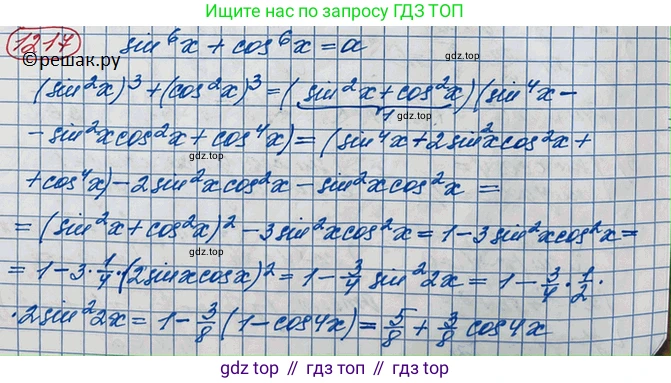 Ищите нас по запросу ГДЗ ТОП
1217 sin⁶x + cos⁶x = a
©решак.ру
gdz.top
(sin²x)³ + (cos²x)³ = (sin²x + cos²x)(sin⁴x −
1
gdz.top
− sin²x cos²x + cos⁴x) = (sin⁴x + 2sin²x cos²x +
gdz.top
+ cos⁴x) − 2sin²x cos²x − sin²x cos²x =
gdz.top
= (sin²x + cos²x)² − 3sin²x cos²x = 1 − 3sin²x cos²x =
= 1 − 3 · 1/4 · (2sinx cosx)² = 1 − 3/4 sin²2x = 1 − 3/4 · 1/2 ·
gdz.top
· 2sin²2x = 1 − 3/8 (1 − cos4x) = 5/8 + 3/8 cos4x
gdz.top // гдз.top // гдз.топ